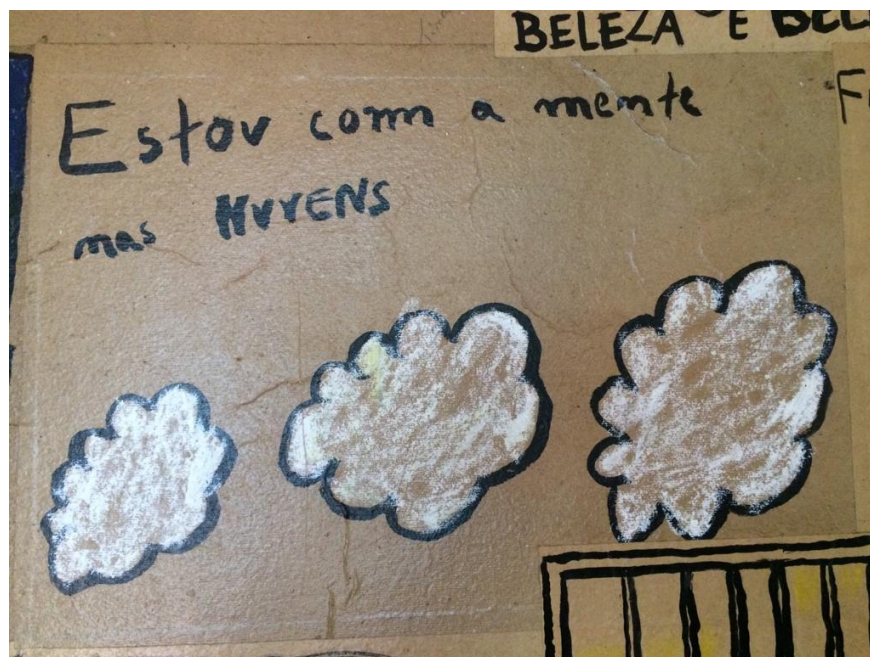 BELEZA E BEL
Estov com a mente
mas NUVENS
F